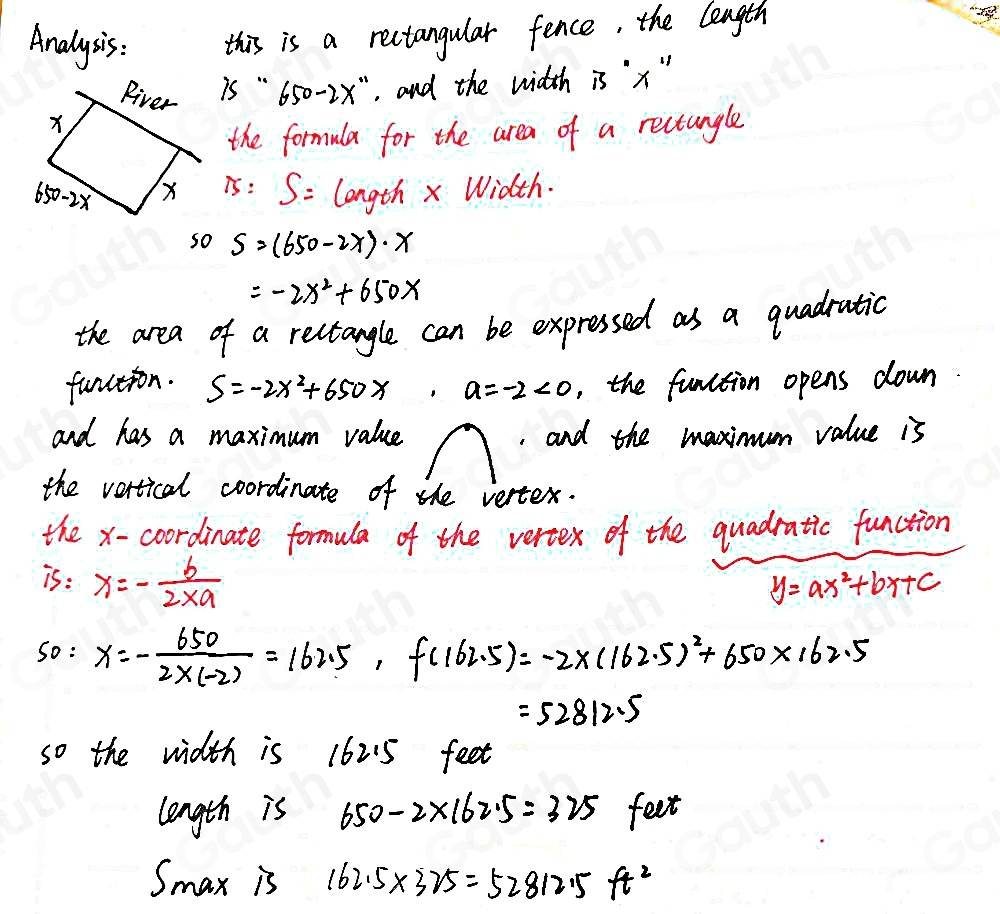 Analysis: this is a rectangular fence, the length
River is "650-2x", and the width is "x"
x the formula for the area of a rectangle
650-2x x is: S= Length × Width.
so S=(650-2x)·x
= -2x²+650x
the area of a rectangle can be expressed as a quadratic
function. S=-2x²+650x, a=-2<0, the function opens down
and has a maximum value, and the maximum value is
the vertical coordinate of the vertex.
the x-coordinate formula of the vertex of the quadratic function
is: x=-b/2×a y=ax²+bx+c
so: x=-650/2×(-2) = 162.5, f(162.5)=-2×(162.5)²+650×162.5
=52812.5
so the width is 162.5 feet
length is 650-2×162.5=325 feet
Smax is 162.5×325=52812.5 ft²
Gauth